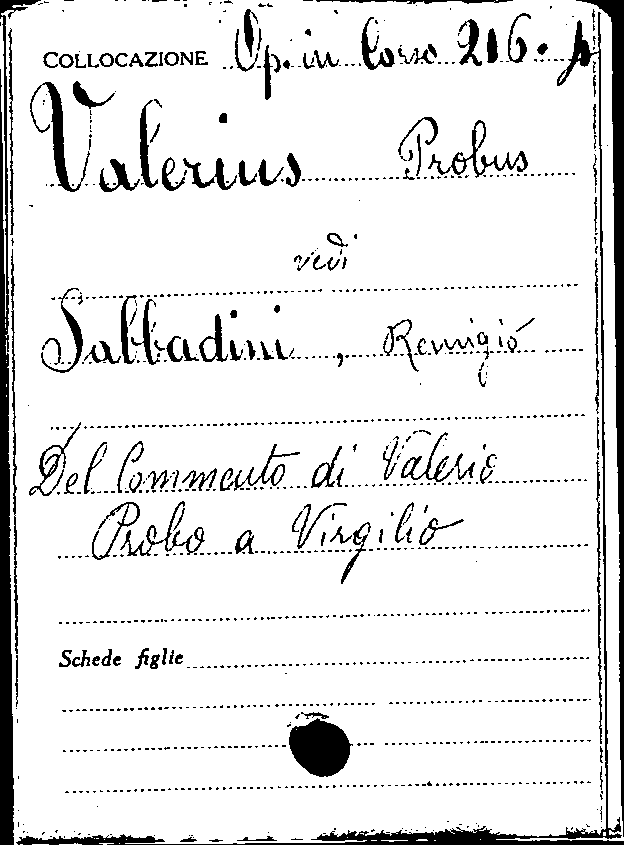 COLLOCAZIONE Op. in Corso 216. p
Valerius Probus
vedi
Sabbadini, Remigio
Del Commento di Valerio
Probo a Virgilio
Schede figlie